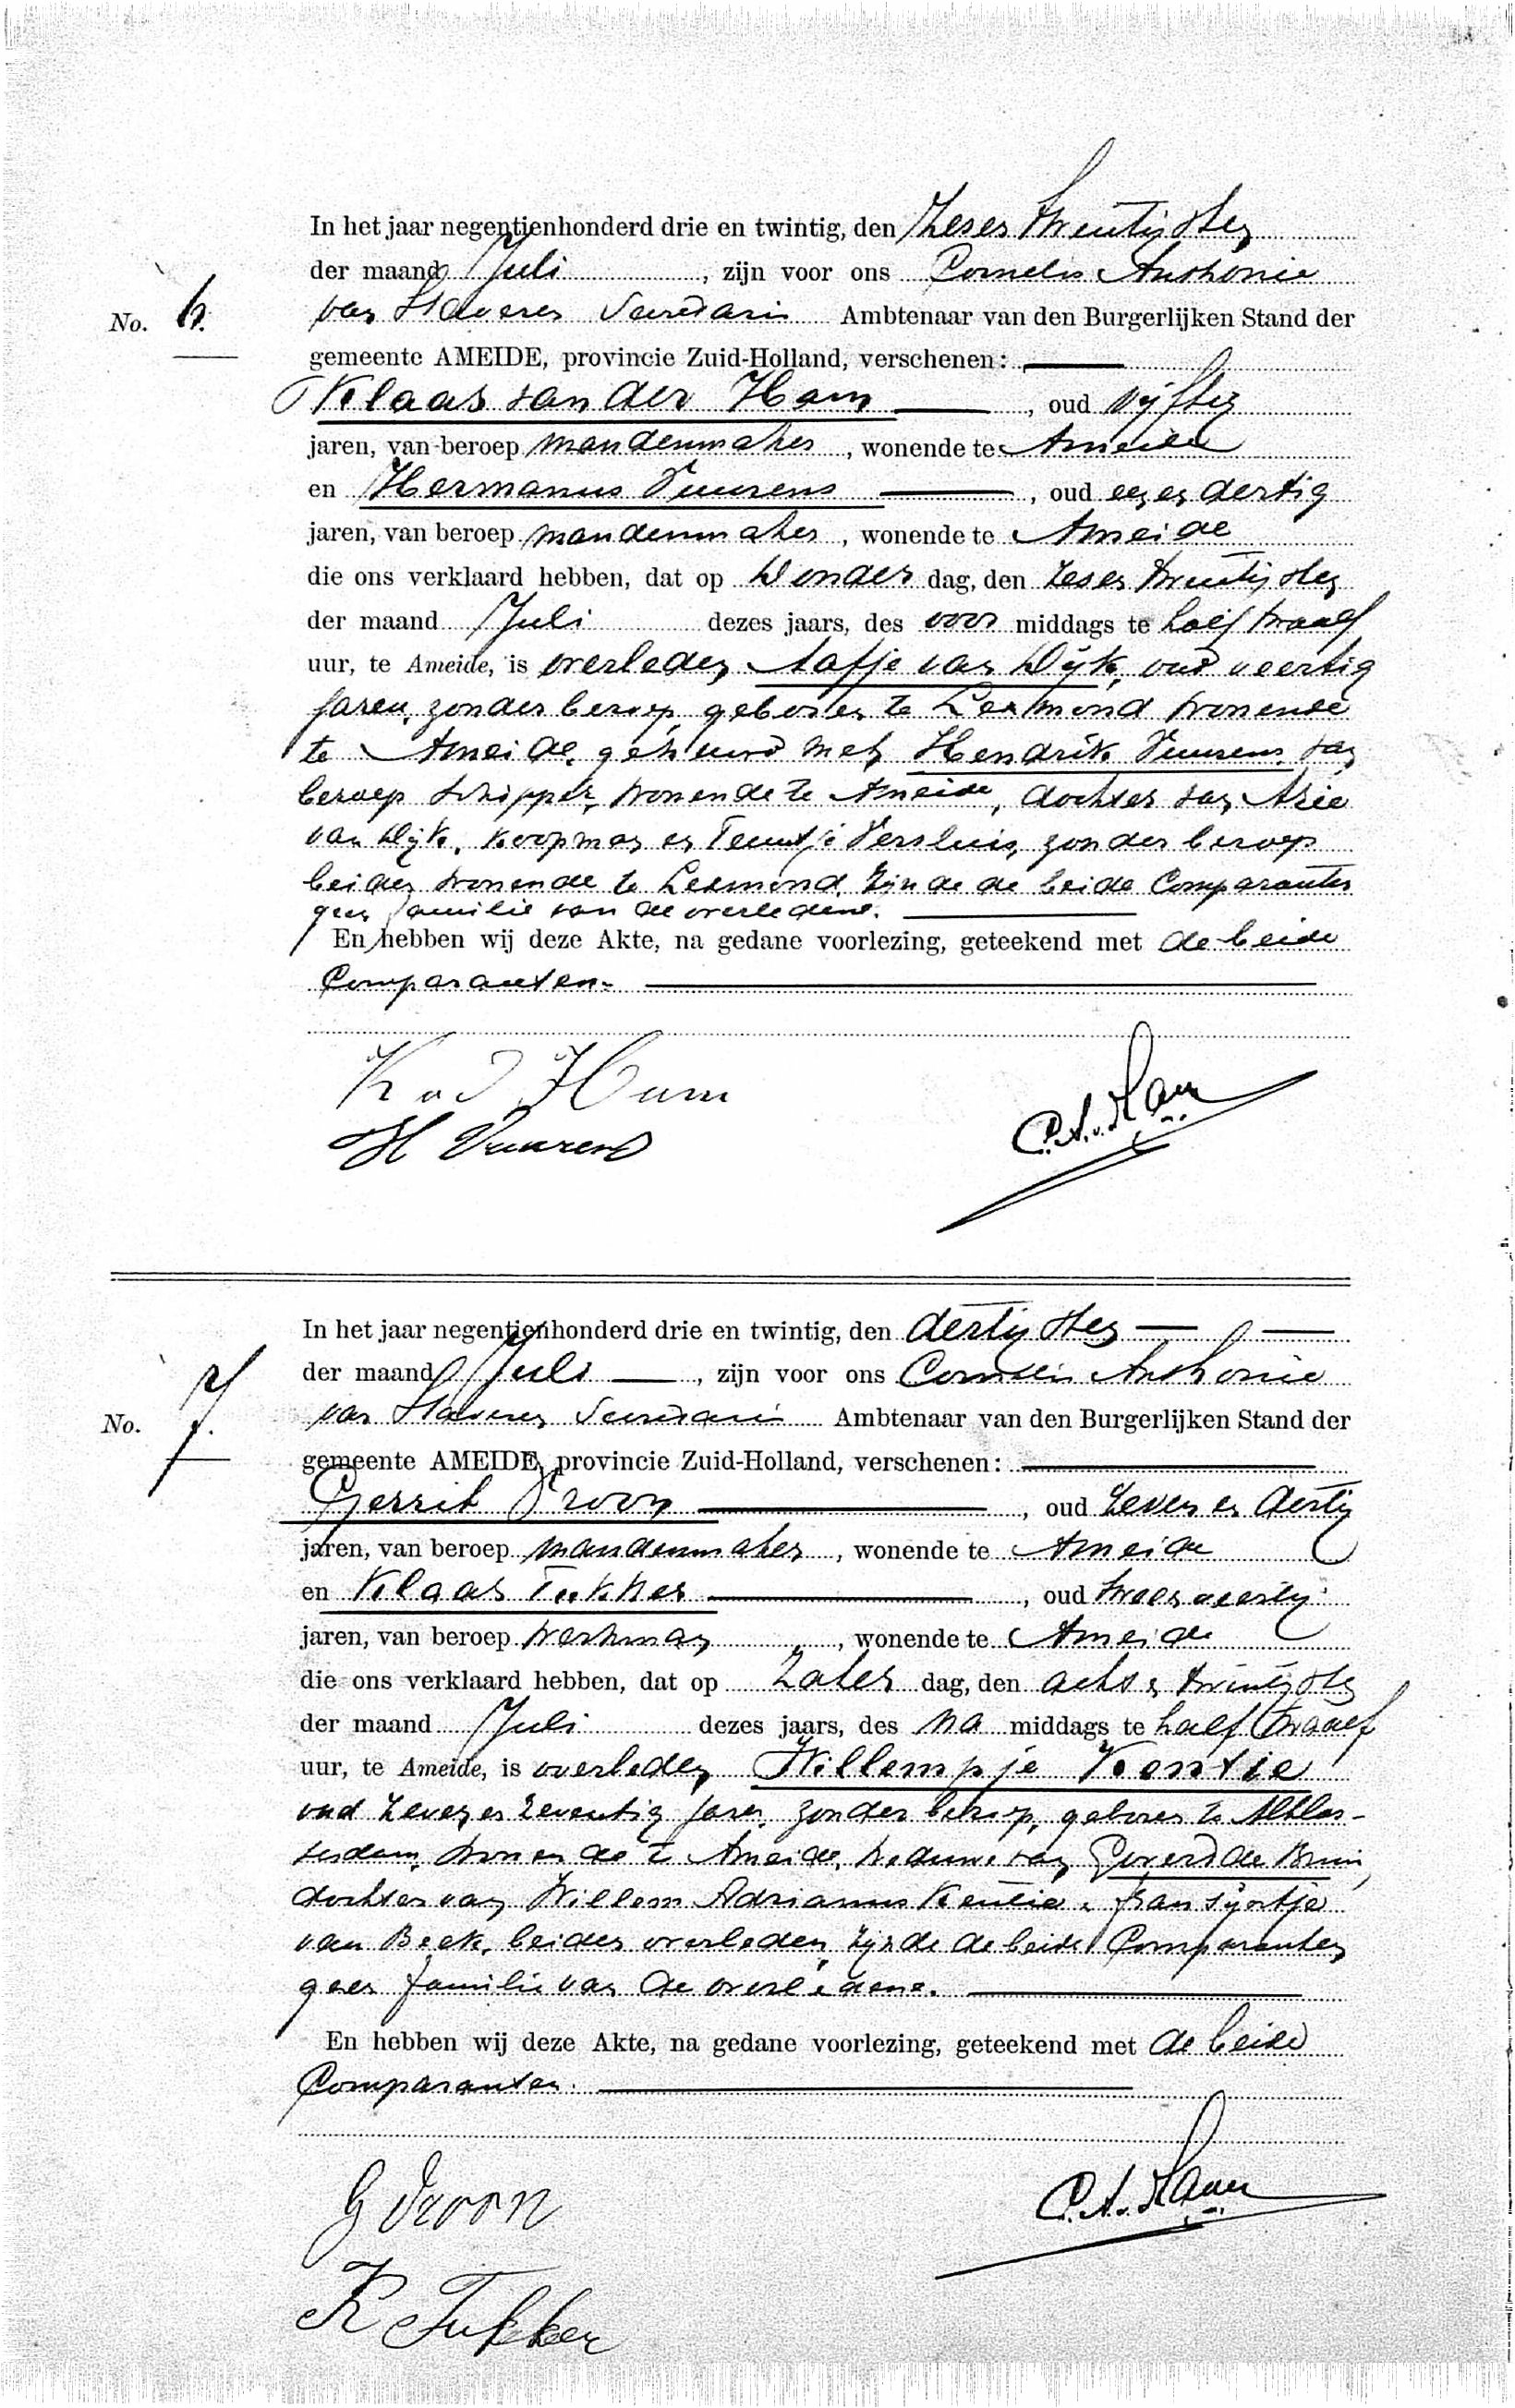 In het jaar negentienhonderd drie en twintig, den zesen twintigsten
der maand Juli, zijn voor ons Cornelis Anthonie
No. 6.
van Staveren Secretaris Ambtenaar van den Burgerlijken Stand der
gemeente AMEIDE, provincie Zuid-Holland, verschenen:
Klaas van der Ham, oud vijftig
jaren, van beroep mandenmaker, wonende te Ameide
en Hermanus Vuurens, oud een en dertig
jaren, van beroep mandenmaker, wonende te Ameide
die ons verklaard hebben, dat op Donder dag, den zesen twintigsten
der maand Juli dezes jaars, des voor middags te half twaalf
uur, te Ameide, is overleden Aafje van Dijk, oud veertig
jaren, zonder beroep, geboren te Lexmond wonende
te Ameide, gehuwd met Hendrik Vuurens, van
beroep schipper, wonende te Ameide, dochter van Arie
van Dijk, koopman en Teuntje Versluis, zonder beroep
beiden wonende te Lexmond, zijnde de beide Comparanten
geen familie van de overledene.
En hebben wij deze Akte, na gedane voorlezing, geteekend met de beide
Comparanten.
K v d Ham
H Vuurens
C.A.v.Stav
In het jaar negentienhonderd drie en twintig, den dertigsten
der maand Juli, zijn voor ons Cornelis Anthonie
No. 7.
van Staveren Secretaris Ambtenaar van den Burgerlijken Stand der
gemeente AMEIDE, provincie Zuid-Holland, verschenen:
Gerrit Vroon, oud zeven en dertig
jaren, van beroep mandenmaker, wonende te Ameide
en Klaas Tukker, oud twee en veertig
jaren, van beroep werkman, wonende te Ameide
die ons verklaard hebben, dat op Zater dag, den acht en twintigsten
der maand Juli dezes jaars, des na middags te half twaalf
uur, te Ameide, is overleden Willempje Kentie
oud zeven en zeventig jaren, zonder beroep, geboren te Alblas-
serdam, wonende te Ameide, weduwe van Goverd de Bruin,
dochter van Willem Adrianus Kentie en Jansijgtje
van Beek, beiden overleden, zijnde de beide Comparanten
geen familie van de overledene.
En hebben wij deze Akte, na gedane voorlezing, geteekend met de beide
Comparanten.
G Vroon
K Tukker